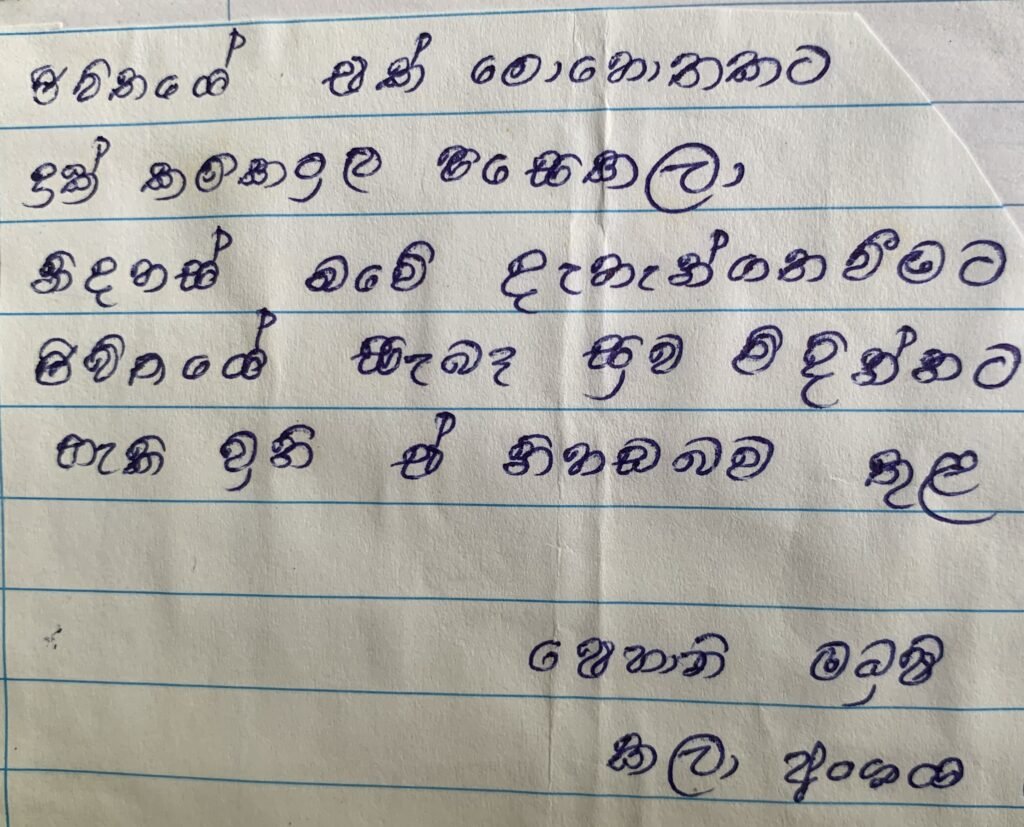 ජිවිතයේ එක් මොහොතකට
දුක් කම්කටුලු පසෙකලා
නිදහස් බවේ දැහැන්ගතවීමට
ජිවිතයේ සැබෑ සුව විදින්නට
හැකි වුනි ඒ නිහඬබව තුළ
ශෙහානි මධුෂි
කලා අංශය